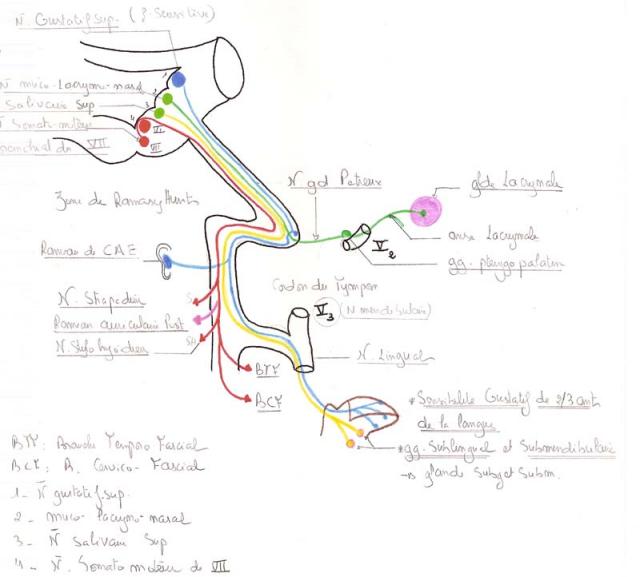 N. Gustatif Sup. (ξ. Sensitive)
N muco-Lacrymo-nasal
Salivaire Sup
N Somato-moteur
branchial du VII
1
2
3
4
VI
VII
Zone de Ramsay Hunt
Rameau de CAE
N. Stapedien
Rameau auriculaire Post
N. Stylo hyoïdien
N gd Petreux
glde Lacrymale
anse Lacrymale
gg. pterygo palatin
V2
Cordon du Tympan
V3 (N mandibulaire)
N. Lingual
BTF
BCF
* Sensibilité Gustatif de 2/3 ant
de la langue
* gg. Sublingual et Submandibulaire
→ glands Subg et Subm.
BTF: Branche Temporo Fascial
BCF: B. Cervico-Fascial
1- N̄ gustatif. sup.
2- muco-lacrymo-nasal
3- N̄ Salivaire Sup
4- N̄. Somato moteur de VII